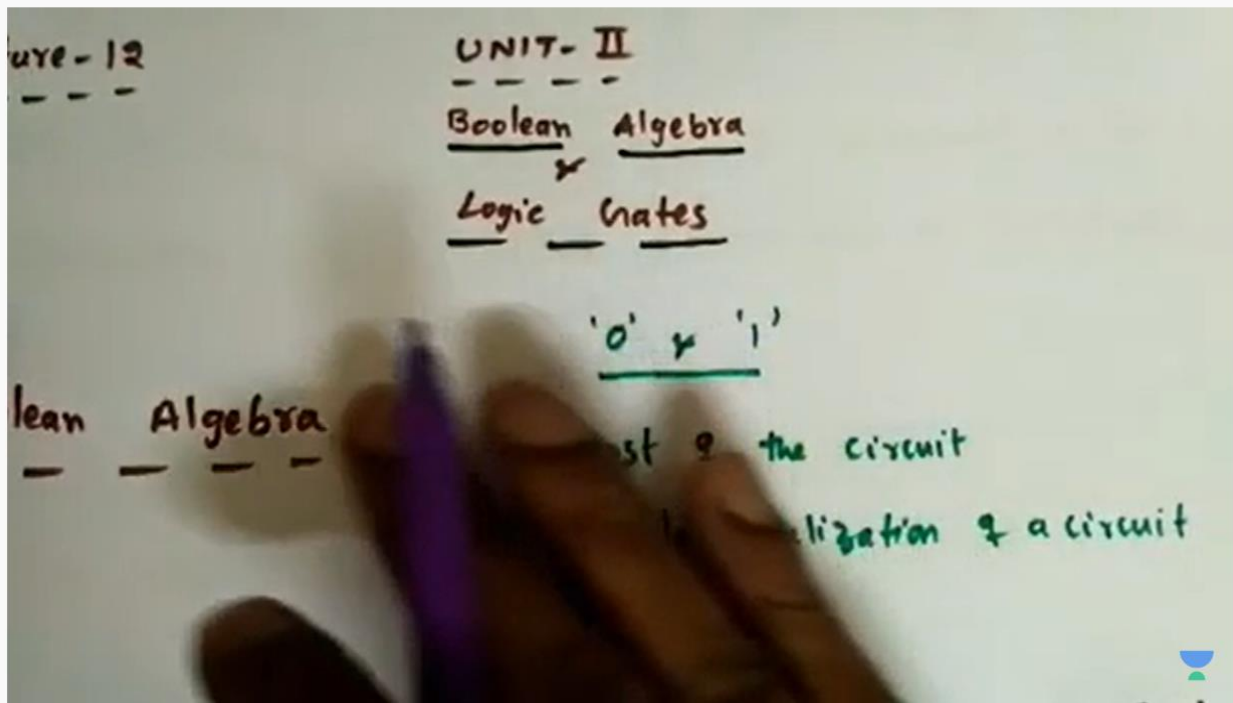 ure-12
UNIT- II
Boolean Algebra
&
Logic Gates
'0' & '1'
lean Algebra
st of the circuit
lization of a circuit